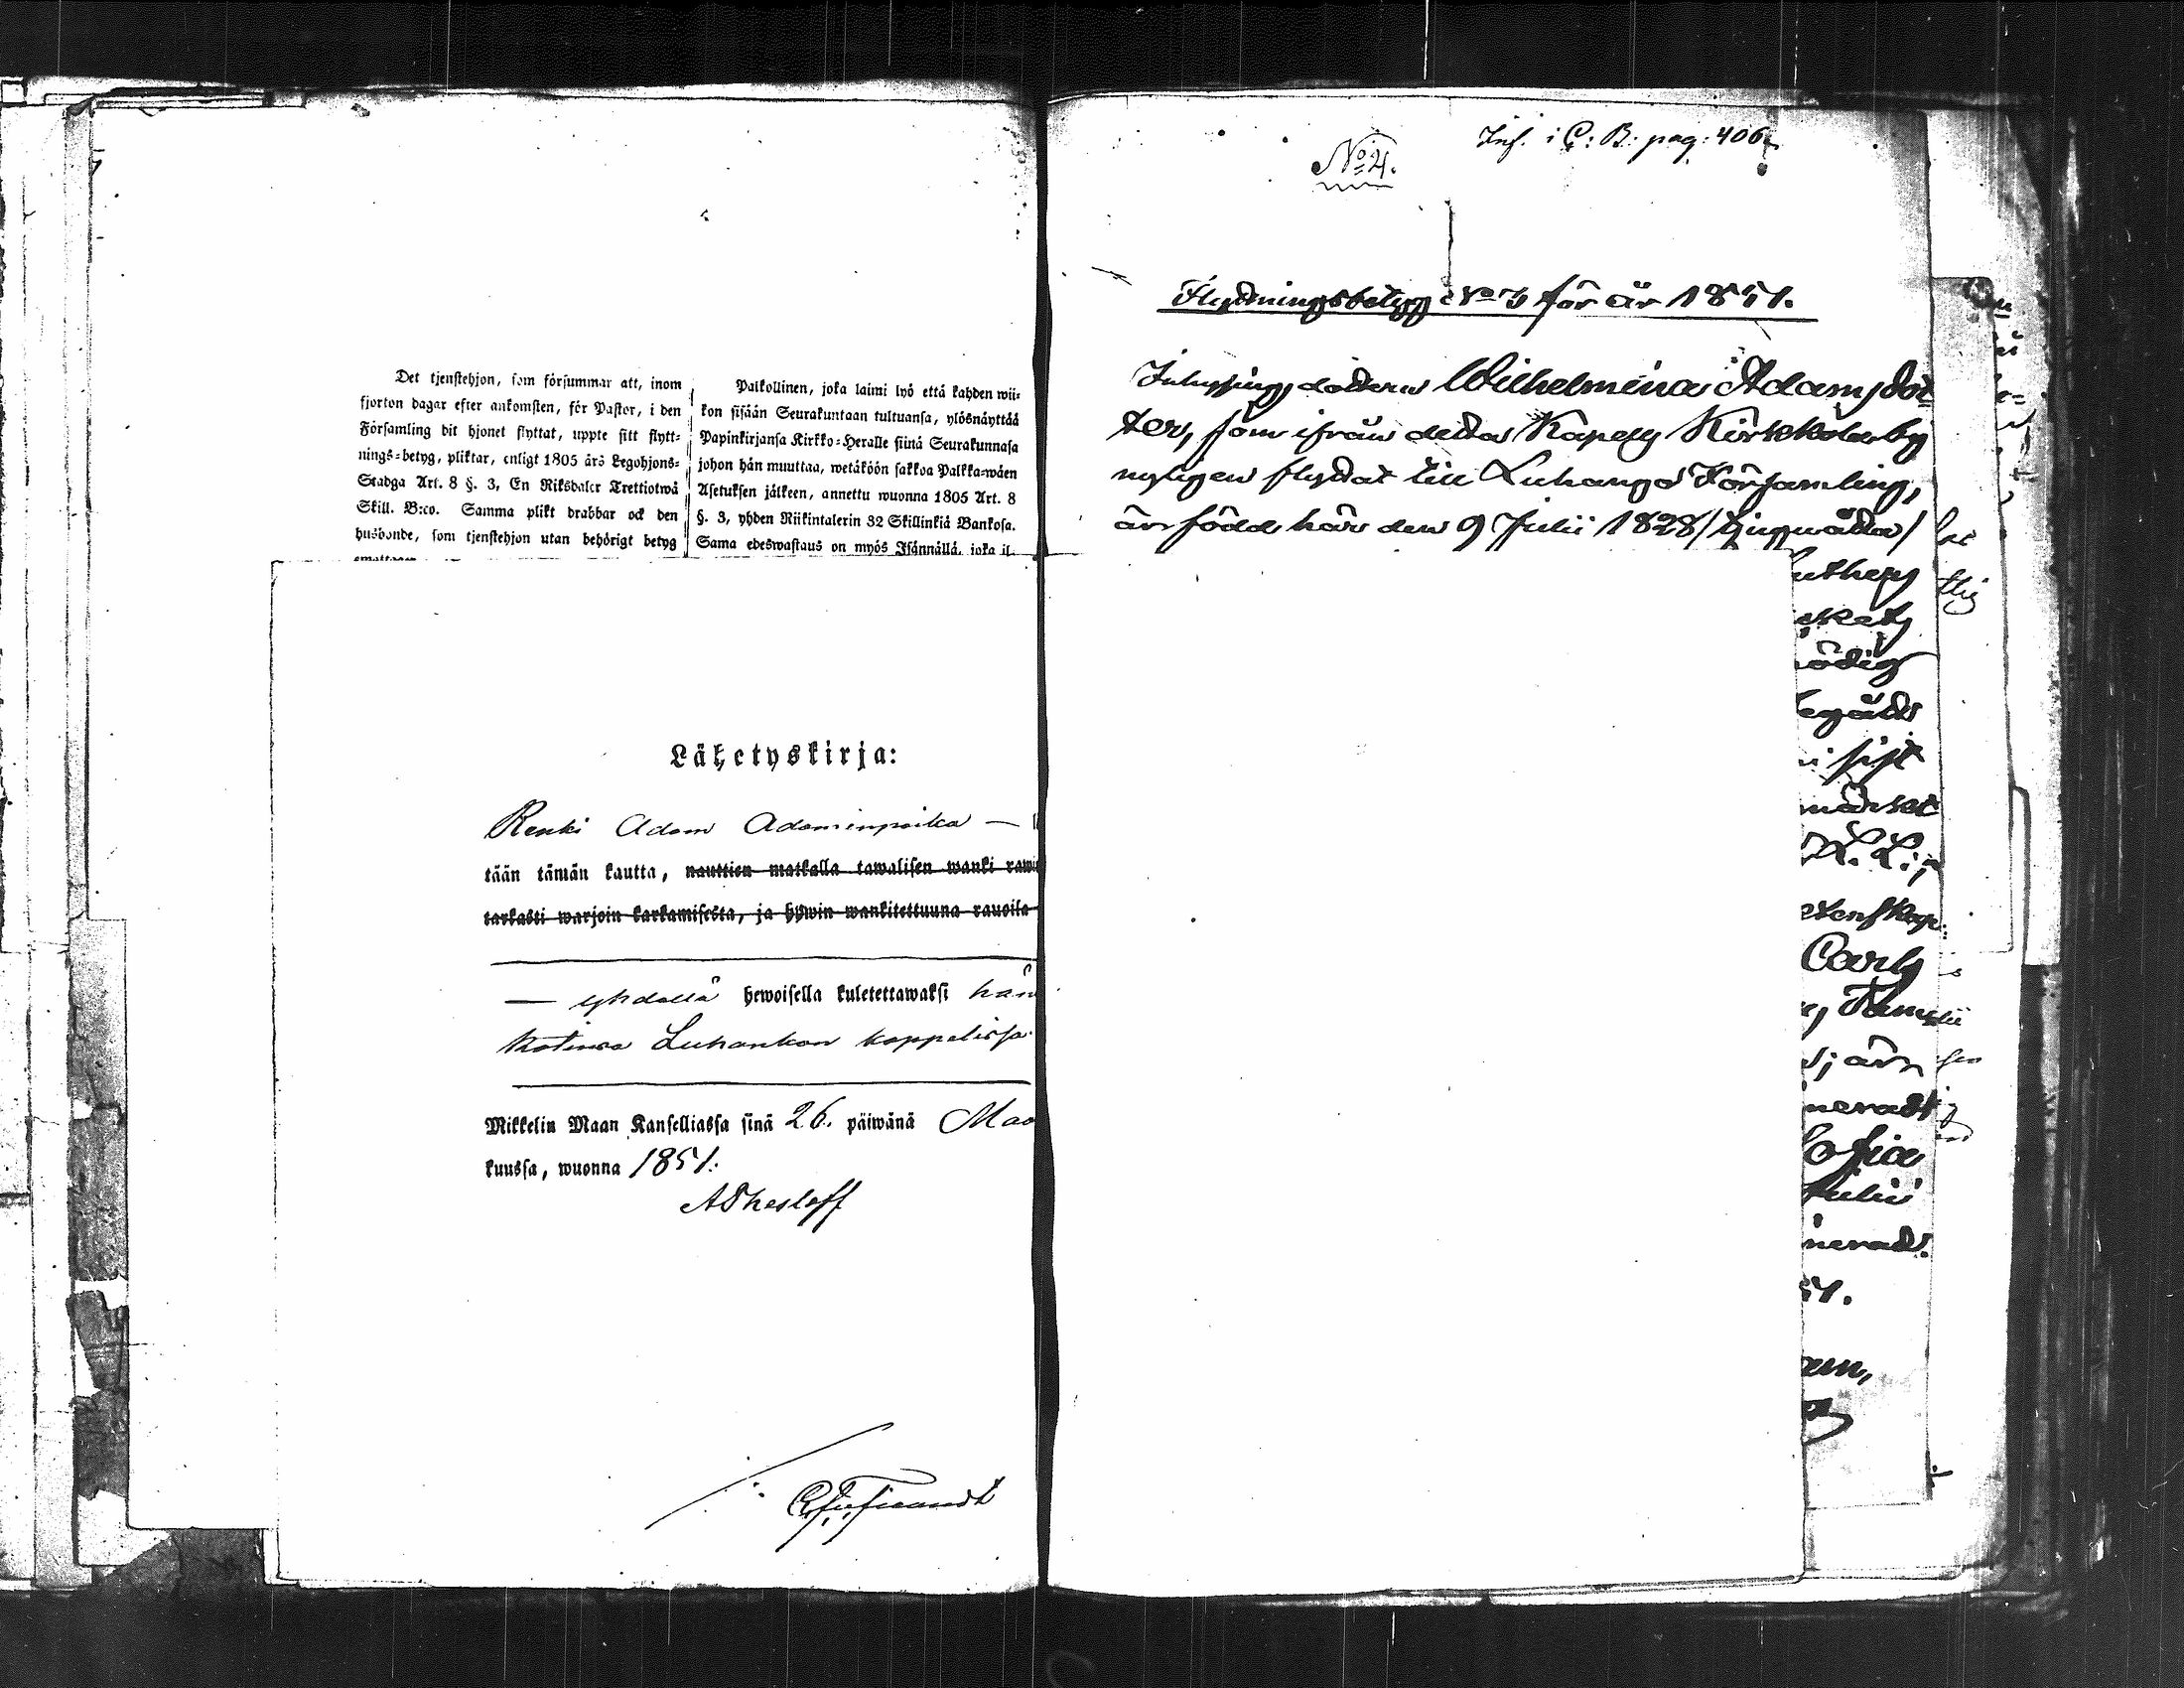 Det tjenstehjon, som försummar att, inom
fjorton dagar efter ankomsten, för Pastor, i den
Församling dit hjonet flyttat, uppte sitt flytt-
nings-betyg, pliktar, enligt 1805 års Legohjons-
Stadga Art. 8 §. 3, En Riksdaler Trettiotwå
Skill. B:co. Samma plikt drabbar ock den
husbonde, som tjenstehjon utan behörigt betyg
emottager
Palkollinen, joka laimi lyö että kahden wii-
kon sisään Seurakuntaan tultuansa, ylösnäyttää
Papinkirjansa Kirkko-Heralle siinä Seurakunnasa
johon hän muuttaa, wetäköön sakkoa Palkka-wäen
Asetuksen jälkeen, annettu wuonna 1805 Art. 8
§. 3, yhden Riikintalerin 32 Skillinkiä Bankosa.
Sama edeswastaus on myös Isännällä, joka il
Lähetyskirja:
Renki Adam Adaminpoika —
tään tämän kautta, nauttien matkalla tawalisen wanki raw
tarkasti warjoin karkamisesta, ja hywin wankitettuuna rauoila
— yhdellä hewoisella kuletettawaksi hän
kotinsa Luhankan kappelissa
Mikkelin Maan Kanselliassa sinä 26. päiwänä Maa
kuussa, wuonna 1851:
AThesleff
No 4.
Inf. i C: B: pag: 406
Flyttningsbetyg No 3 för år 1851.
dottern Wilhelmina Adamsdot-
ter, som ifrån detta Kapells Kirkkoby
nyligen flyttat till Luhango Församling,
är född här den 9 Julii 1828
luthers
skets
nödig
sist
märket
Carls
Famili
är
Sofia
Julii
51.